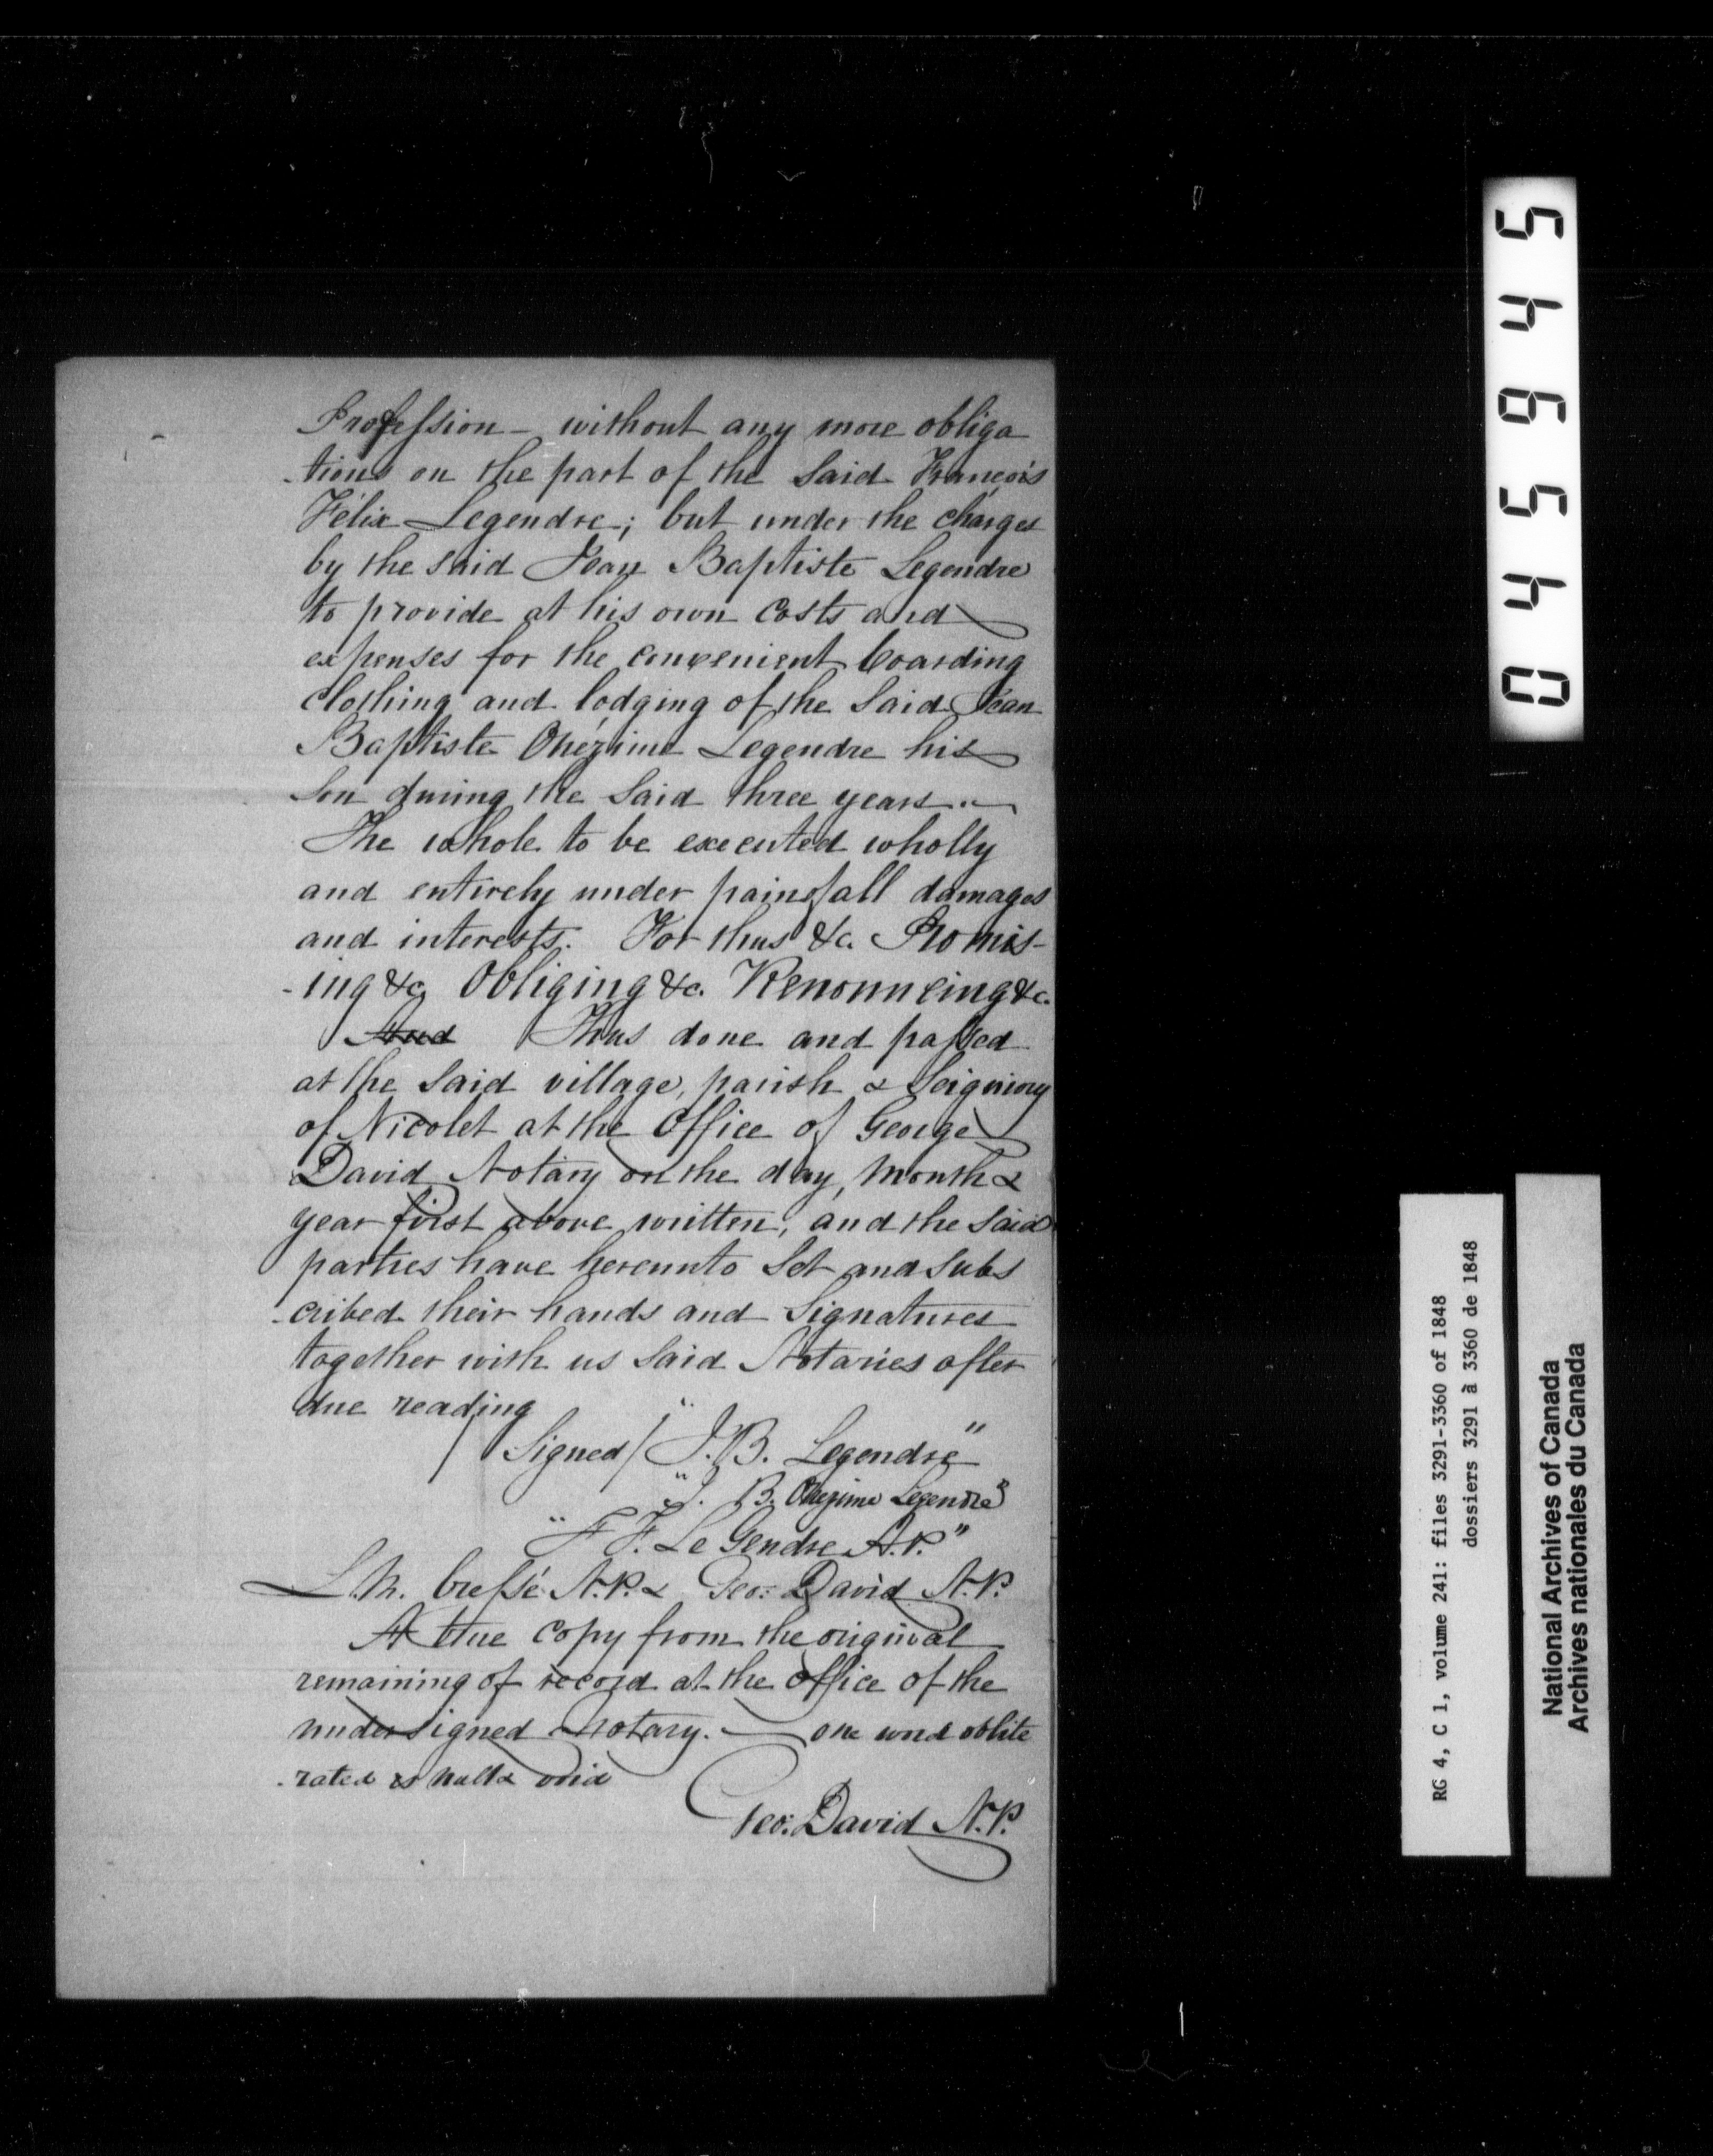 Profession – without any more obliga
-tions on the part of the Said François
Félix Legendre; but under the charges
by the said Jean Baptiste Legendre
to provide at his own Costs and
expenses for the convenient boarding
Clothing and lodging of the Said Jean
Baptiste Onézime Legendre his
Son during the Said three years.
The whole to be executed wholly
and entirely under pain of all damages
and interests. For thus &c. Promis-
-ing &c. Obliging &c. Renouncing &c.
And Thus done and passed
at the Said village, parish & Seigniory
of Nicolet at the Office of George
David Notary on the day, Month &
year first above written; and the Said
parties have hereunto Set and Subs
-cribed their hands and Signatures
together with us Said Notaries after
due reading
/ Signed / "J. B. Legendre"
"J. B. Onezime Legendre"
"F. F. Le Gendre N.P."
L. M. Cressé N.P. & Geo: David N.P.
A true Copy from the original
remaining of record at the Office of the
undersigned Notary. — one word oblite
-rated is null & void
Geo: David N.P.
045945
RG 4, C 1, volume 241: files 3291-3360 of 1848
dossiers 3291 à 3360 de 1848
National Archives of Canada
Archives nationales du Canada